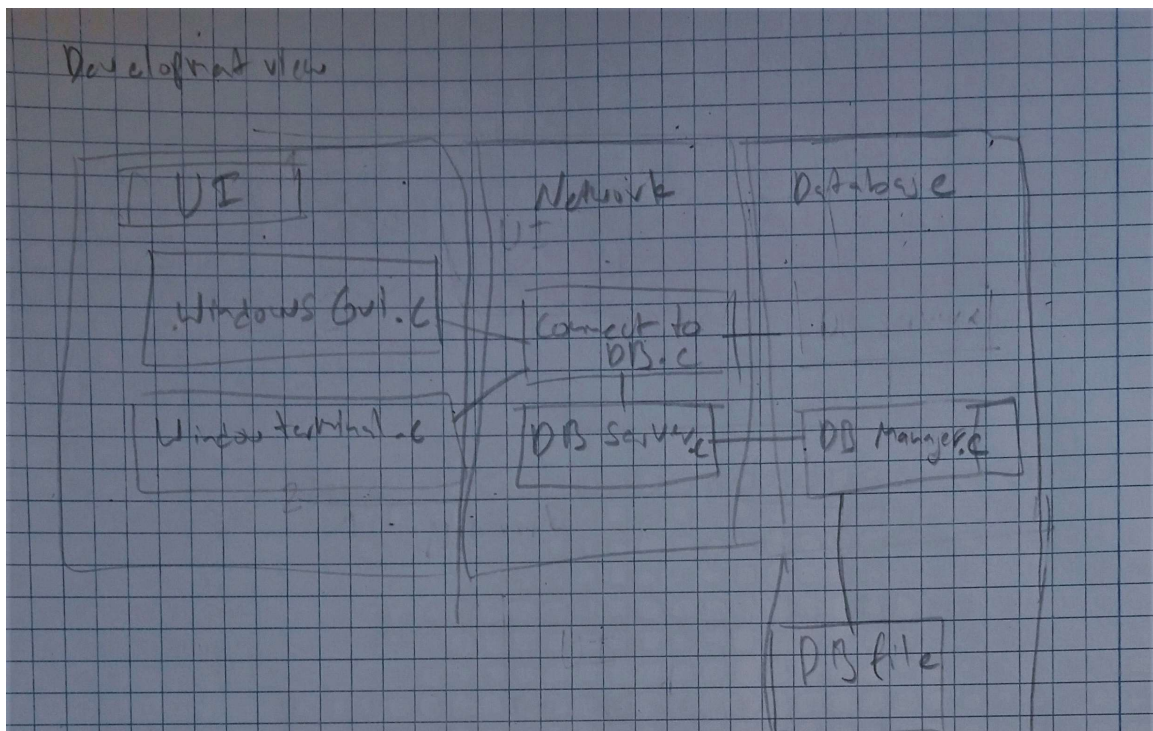 Development view
UI
Network
Database
Windows Gui.c
Connect to
DB.c
Window terminal.c
DB Server.c
DB Manager.c
DB file